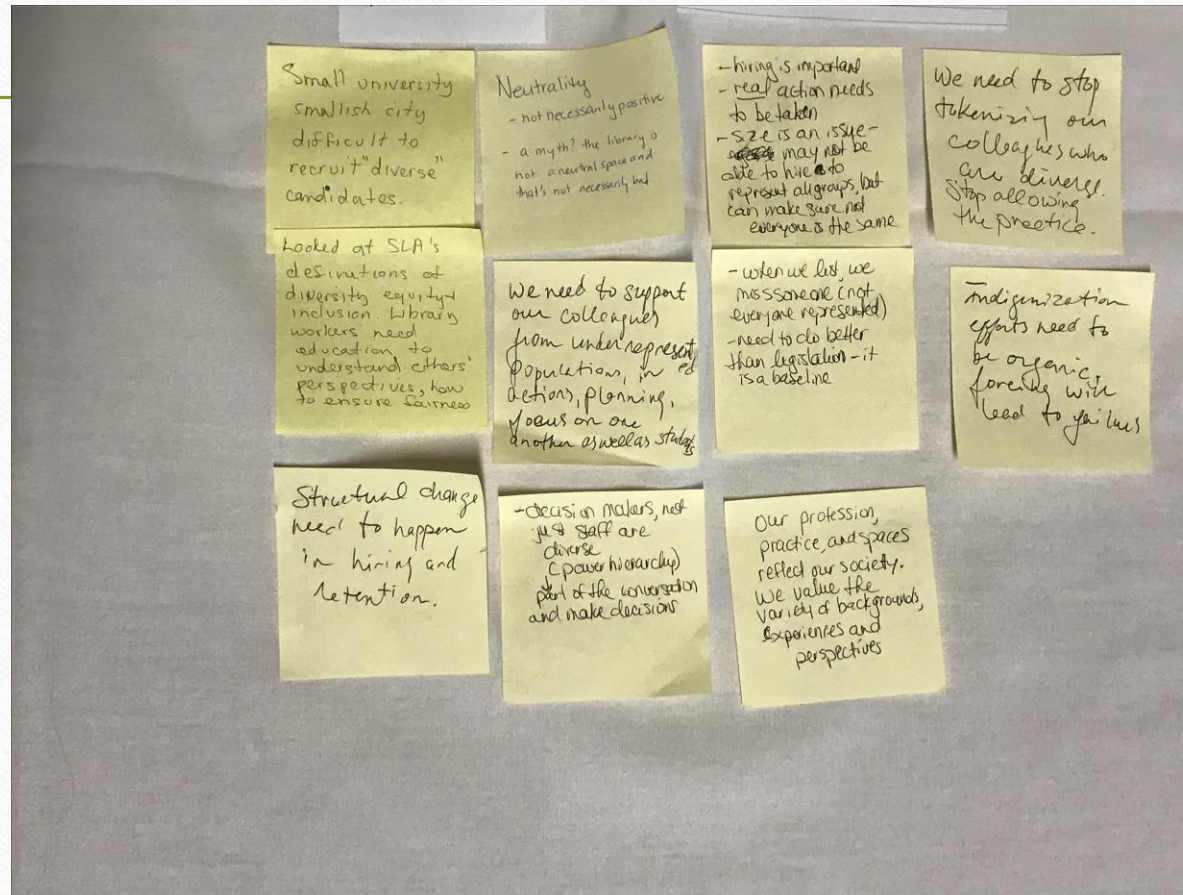 Small university
smallish city
difficult to
recruit "diverse"
candidates.
Neutrality
- not necessarily positive
- a myth? the library is
not a neutral space and
that's not necessarily bad
- hiring is important
- real action needs
to be taken
- size is an issue -
may not be
able to hire to
represent all groups, but
can make sure not
everyone is the same
We need to stop
tokenizing our
colleagues who
are diverse.
Stop allowing
the practice.
Looked at SLA's
definitions of
diversity equity +
inclusion. Library
workers need
education to
understand others'
perspectives, how
to ensure fairness
We need to support
our colleagues
from underrepresented
populations, in
actions, planning,
focus on one
another as well as students
- when we list, we
miss someone (not
everyone represented)
- need to do better
than legislation - it
is a baseline
Indigenization
efforts need to
be organic,
forcing will
lead to failure
Structural change
need to happen
in hiring and
retention.
- decision makers, not
just staff are
diverse
(power hierarchy)
part of the conversation
and make decisions
Our profession,
practice, and spaces
reflect our society.
We value the
variety of backgrounds,
experiences and
perspectives